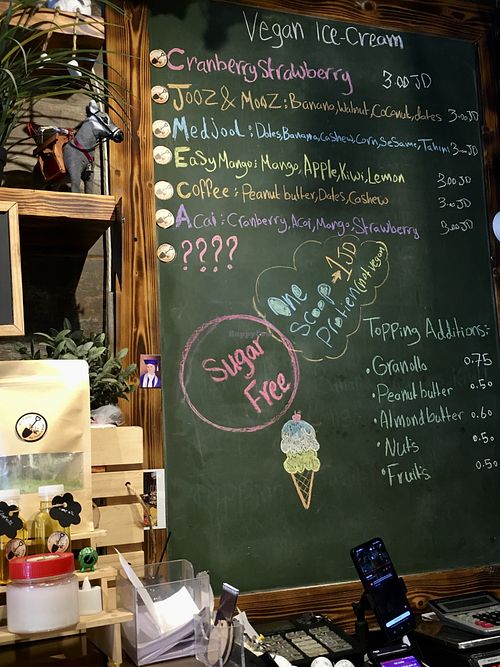 Vegan Ice-Cream
Cranberry Strawberry 3.00 JD
Jooz & Mooz: Banana, Walnut, Coconut, dates 3.00 JD
Medjool: Dates, Banana, Cashew, Corn, SeSame, Tahini 3.00 JD
EaSy Mango: Mango, Apple, Kiwi, Lemon 3.00 JD
Coffee: Peanut butter, Dates, Cashew 3.00 JD
Acai: Cranberry, Acai, Mango, Strawberry 3.00 JD
????
One Scoop → 1 JD
Protien (not vegan)
Sugar
Free
Topping Additions:-
• Granolla 0.75
• Peanut butter 0.50
• Almond butter 0.60
• Nuts 0.50
• Fruits 0.50